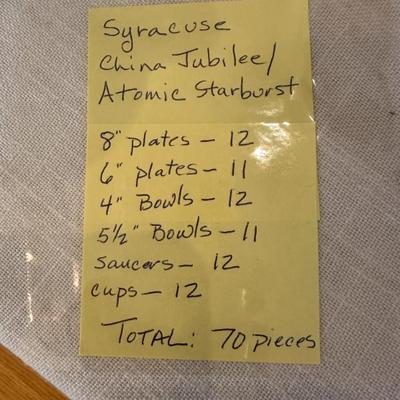 Syracuse
China Jubilee/
Atomic Starburst
8" plates - 12
6" plates - 11
4" Bowls - 12
5½" Bowls - 11
saucers - 12
cups - 12
TOTAL: 70 pieces